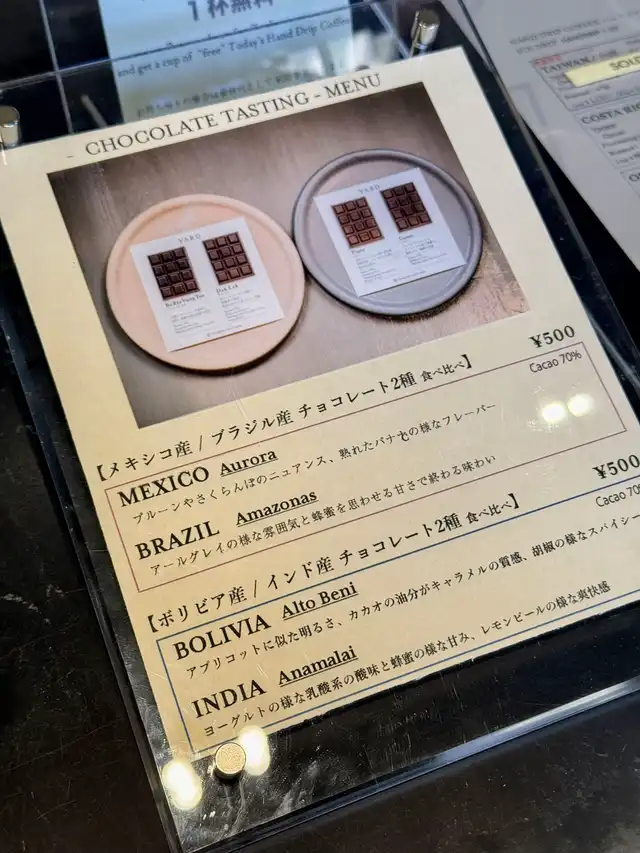 1杯無料
and get a cup of "free" Today's Hand Drip Coffee
CHOCOLATE TASTING - MENU
YARD
YARD
¥500
【メキシコ産 / ブラジル産 チョコレート2種 食べ比べ】
Cacao 70%
MEXICO Aurora
プルーンやさくらんぼのニュアンス、熟れたバナナの様なフレーバー
BRAZIL Amazonas
アールグレイの様な雰囲気と蜂蜜を思わせる甘さで終わる味わい
¥500
【ボリビア産 / インド産 チョコレート2種 食べ比べ】
Cacao 70%
BOLIVIA Alto Beni
アプリコットに似た明るさ、カカオの油分がキャラメルの質感、胡椒の様なスパイシー
INDIA Anamalai
ヨーグルトの様な乳酸系の酸味と蜂蜜の様な甘み、レモンピールの様な爽快感
TAIWAN
SOLD
COSTA RI